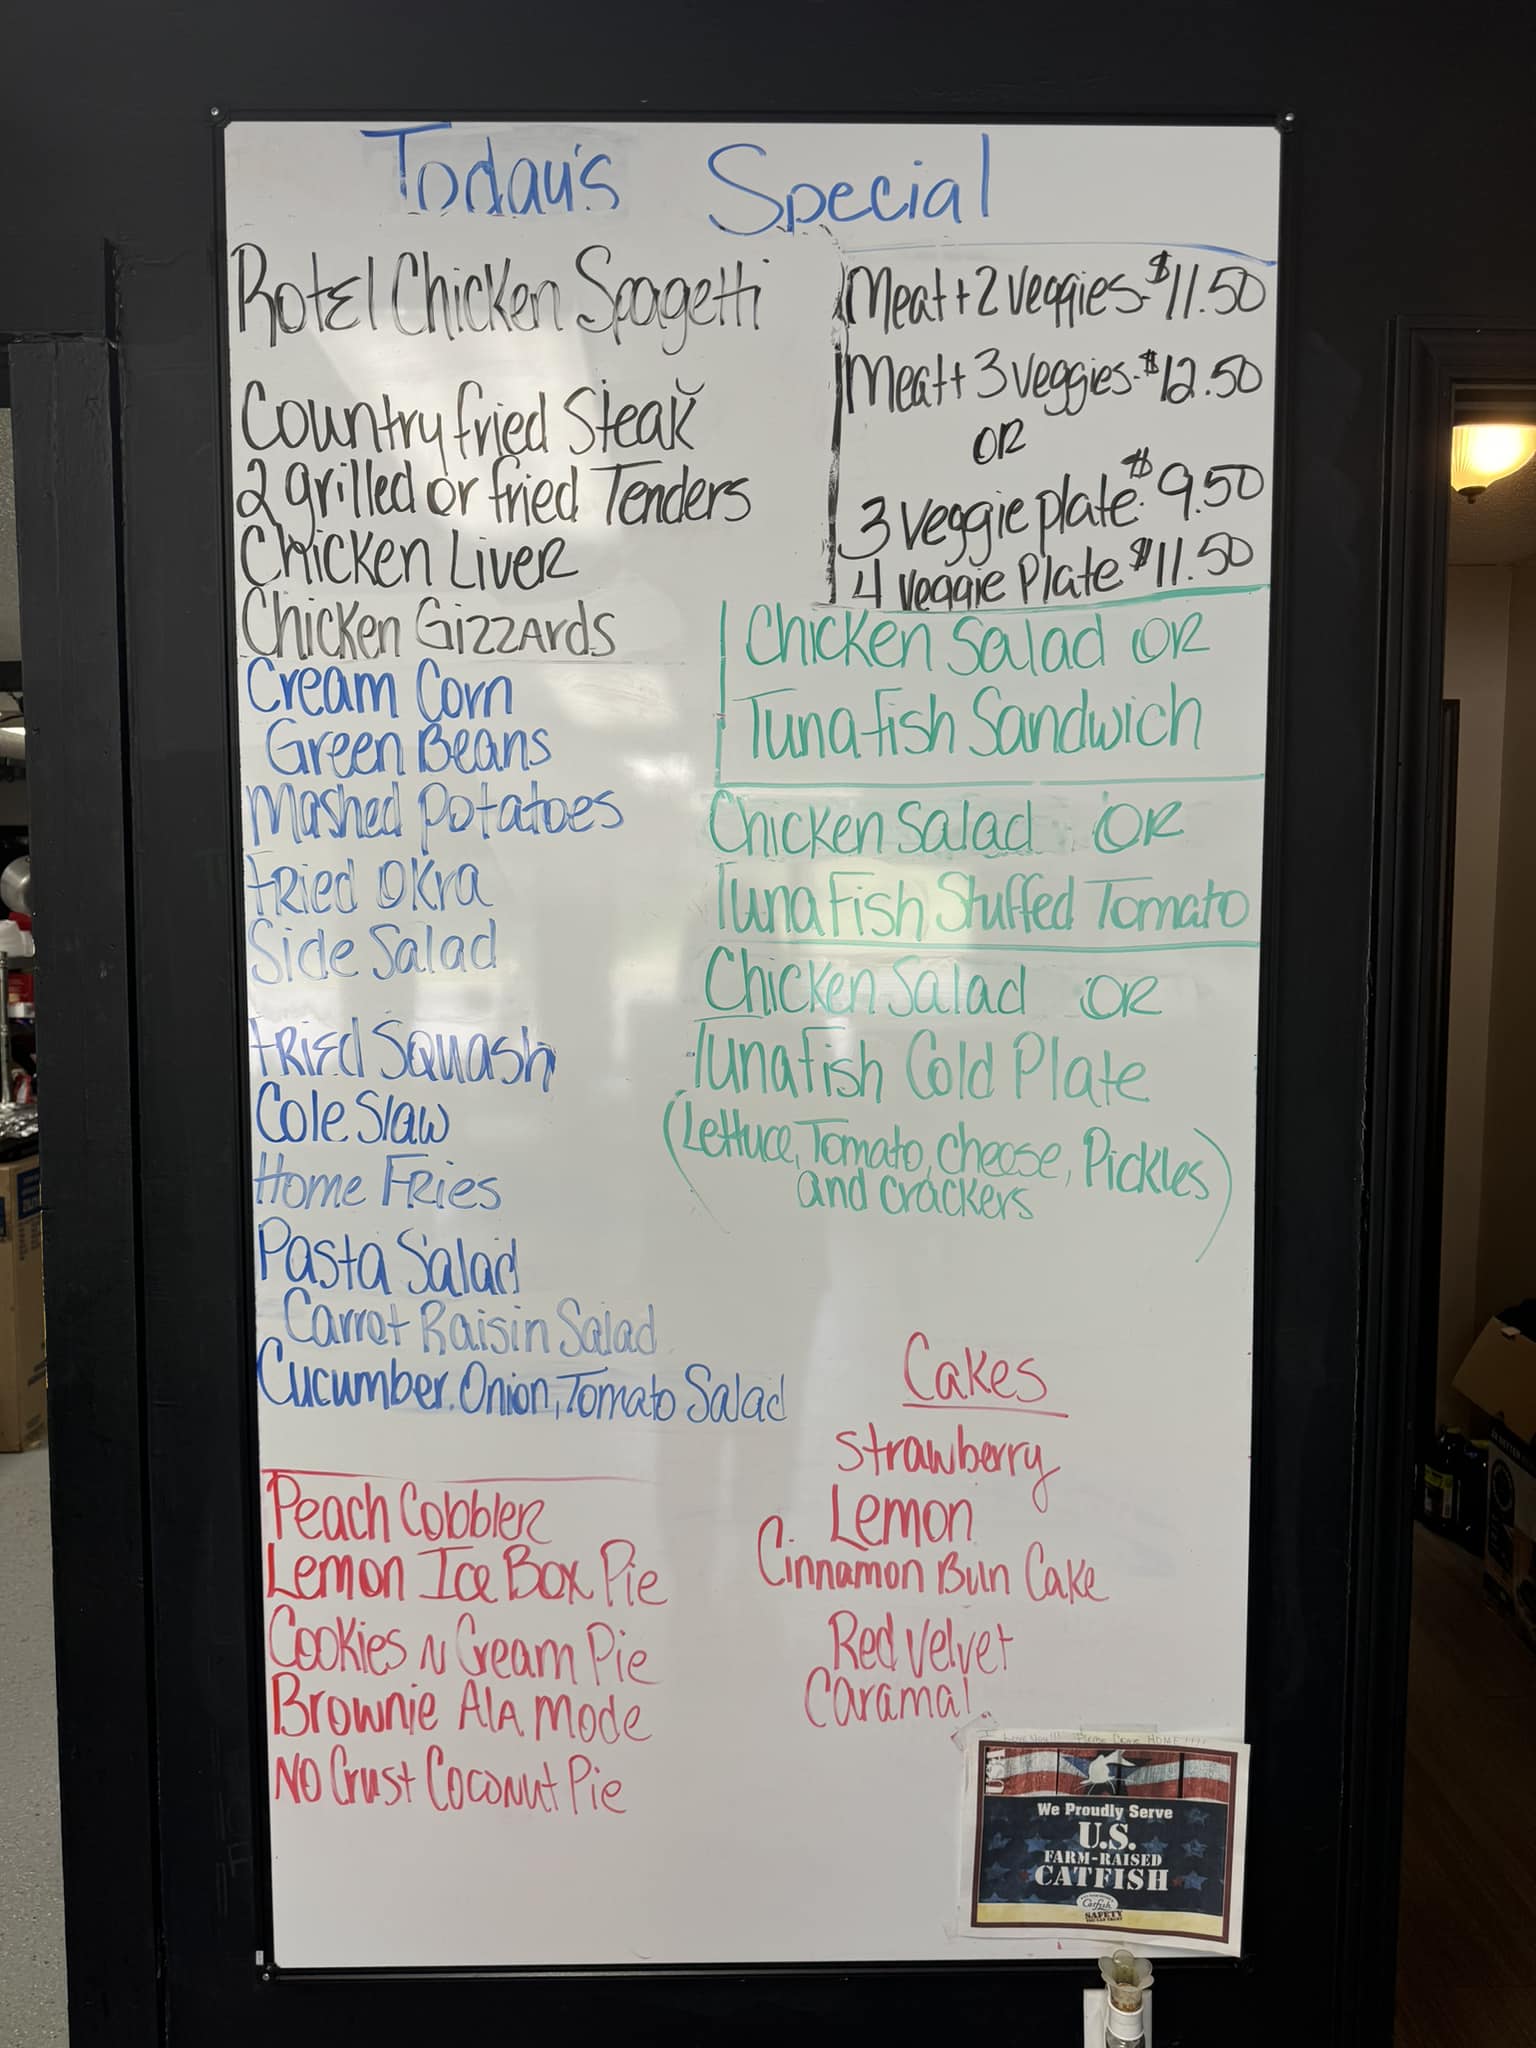 Today's Special
Rotel Chicken Spagetti
Country fried Steak
2 grilled or fried Tenders
Chicken Liver
Chicken Gizzards
Cream Corn
Green Beans
Mashed Potatoes
Fried Okra
Side Salad
Fried Squash
Cole Slaw
Home Fries
Pasta Salad
Carrot Raisin Salad
Cucumber, Onion, Tomato Salad
Peach Cobbler
Lemon Ice Box Pie
Cookies N Cream Pie
Brownie Ala Mode
No Crust Coconut Pie
Meat + 2 veggies - $11.50
Meat + 3 veggies - $12.50
OR
3 veggie plate - $9.50
4 veggie Plate $11.50
Chicken Salad OR
Tuna fish Sandwich
Chicken Salad OR
Tuna Fish Stuffed Tomato
Chicken Salad OR
Tuna Fish Cold Plate
(Lettuce, Tomato, cheese, Pickles
and crackers)
Cakes
Strawberry
Lemon
Cinnamon Bun Cake
Red Velvet
Caramal
USA
We Proudly Serve
U.S.
FARM-RAISED
CATFISH
Catfish
SAFETY